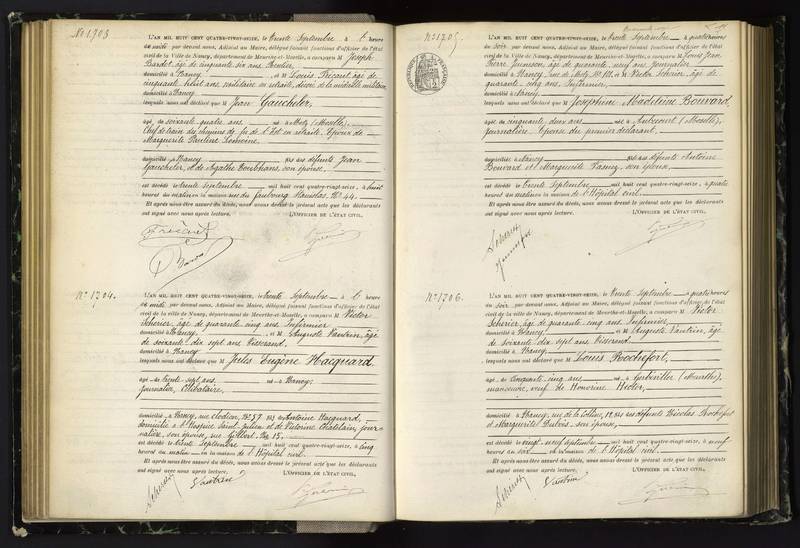 No 1703
L'AN MIL HUIT CENT QUATRE-VINGT-SEIZE, le trente Septembre à heure
de par devant nous, Adjoint au Maire, délégué faisant fonctions d'officier de l'état
civil de la ville de Nancy, département de Meurthe-et-Moselle, a comparu M Joseph
Bardet, âge de cinquante six ans, Rentier,
domicilié à Nancy, et M Louis Précart, âge de
cinquante huit ans, militaire en retraite, décoré de la médaille militaire,
domicilié à Nancy,
lesquels nous ont déclaré que M Jean Gaucheler,
âgé de soixante quatre ans, né à Metz (Moselle),
Chef de train des chemins de fer de l'Est en retraite, Epoux de
Marguerite Pauline Lemoine,
domicilié à Nancy fils des défunts Jean
Gaucheler, et de Agathe son épouse,
est décédé le trente Septembre mil huit cent quatre-vingt-seize, à huit
heures du matin en la maison sise du faubourg Stanislas, No 44.
Et après nous être assuré du décès, nous avons dressé le présent acte que les déclarants
ont signé avec nous après lecture. L'OFFICIER DE L'ÉTAT CIVIL,
No 1704.
L'AN MIL HUIT CENT QUATRE-VINGT-SEIZE, le trente Septembre à heure
de par devant nous, Adjoint au Maire, délégué faisant fonctions d'officier de l'état
civil de la ville de Nancy, département de Meurthe-et-Moselle, a comparu M Victor
Scherier, âge de quarante cinq ans, Infirmier
domicilié à Nancy, et M Auguste Vautrin, âge
de soixante dix sept ans Tisserand,
domicilié à Nancy
lesquels nous ont déclaré que M Jules Eugène Hacquard,
âgé de trente sept ans né à Nancy,
Journalier, Célibataire,
domicilié à Nancy, rue Clodion, No 57 fils de Antoine Hacquard,
domicilié à l'Hospice Saint Julien et de Victorine Chatelain, jour-
nalière, son épouse, rue Gilbert, No 15,
est décédé le trente Septembre mil huit cent quatre-vingt-seize, à cinq
heures du matin en la maison de l'Hôpital civil.
Et après nous être assuré du décès, nous avons dressé le présent acte que les déclarants
ont signé avec nous après lecture. L'OFFICIER DE L'ÉTAT CIVIL,
Scherier Vautrin
No 1705
L'AN MIL HUIT CENT QUATRE-VINGT-SEIZE, le trente Septembre à quatre heures
du soir par devant nous, Adjoint au Maire, délégué faisant fonctions d'officier de l'état
civil de la ville de Nancy, département de Meurthe-et-Moselle, a comparu M Louis Jean
Pierre âge de quarante neuf ans, Journalier,
domicilié à Nancy, rue de Metz, No 111, et M Victor Scherier, âge de
quarante cinq ans, Infirmier,
domicilié à Nancy,
lesquels nous ont déclaré que M Josephine Madeleine Bouvard,
âgé de cinquante deux ans, né à Aubecourt (Moselle),
journalière, Epouse du premier déclarant,
domicilié à Nancy fils des défunts Antoine
Bouvard et Marguerite son époux,
est décédé le trente Septembre mil huit cent quatre-vingt-seize, à quatre
heures du matin en la maison de l'Hôpital civil.
Et après nous être assuré du décès, nous avons dressé le présent acte que les déclarants
ont signé avec nous après lecture. L'OFFICIER DE L'ÉTAT CIVIL,
Scherier
No 1706.
L'AN MIL HUIT CENT QUATRE-VINGT-SEIZE, le trente Septembre à quatre heures
du soir par devant nous, Adjoint au Maire, délégué faisant fonctions d'officier de l'état
civil de la ville de Nancy, département de Meurthe-et-Moselle, a comparu M Victor
Scherier, âge de quarante cinq ans, Infirmier,
domicilié à Nancy, et M Auguste Vautrin, âge
de soixante dix sept ans Tisserand,
domicilié à Nancy,
lesquels nous ont déclaré que M Louis Rochefort,
âgé de cinquante cinq ans né à Gerbéviller (Meurthe),
manoeuvre, veuf de Honorine Hector,
domicilié à Nancy, rue de la Colline, 12, fils des défunts Nicolas Rochefort
et Marguerite Dubois, son épouse,
est décédé le vingt neuf septembre mil huit cent quatre-vingt-seize, à neuf
heures du soir en la maison de l'Hôpital civil.
Et après nous être assuré du décès, nous avons dressé le présent acte que les déclarants
ont signé avec nous après lecture. L'OFFICIER DE L'ÉTAT CIVIL,
Scherier Vautrin